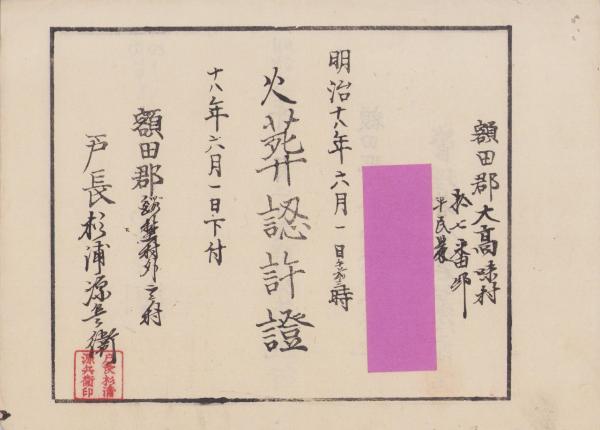 額田郡大高味村
拾七番邸
平民農
明治十八年六月一日午前三時
火葬認許證
十八年六月一日下付
額田郡 村外二ヶ村
戸長杉浦源兵衛
戸長杉浦
源兵衛印